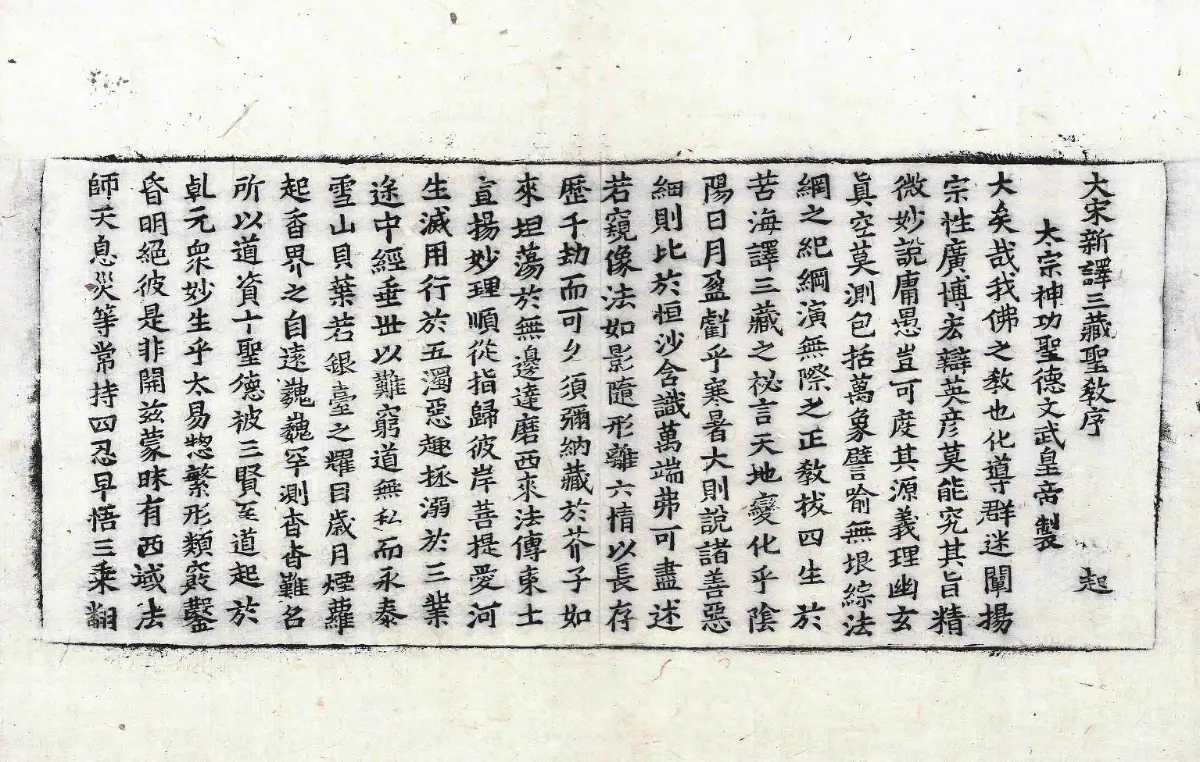 大宋新譯三藏聖教序 起
太宗神功聖德文武皇帝製
大矣哉我佛之教也化導群迷闡揚
宗性廣博宏辯英彥莫能究其旨精
微妙說庸愚豈可度其源義理幽玄
眞空莫測包括萬象譬喻無垠綜法
網之紀綱演無際之正教拔四生於
苦海譯三藏之祕言天地變化乎陰
陽日月盈虧乎寒暑大則說諸善惡
細則比於恒沙含識萬端弗可盡述
若窺像法如影隨形離六情以長存
歷千劫而可久須彌納藏於芥子如
來坦蕩於無邊達磨西來法傳東土
宣揚妙理順從指歸彼岸菩提愛河
生滅用行於五濁惡趣拯溺於三業
途中經垂世以難窮道無私而永泰
雪山貝葉若銀臺之耀目歲月煙蘿
起香界之自遠巍巍罕測杳杳難名
所以道資十聖德被三賢至道起於
乹元衆妙生乎太易惣繁形類竅鑿
昏明絕彼是非開兹蒙昧有西域法
師天息災等常持四忍早悟三乘翻